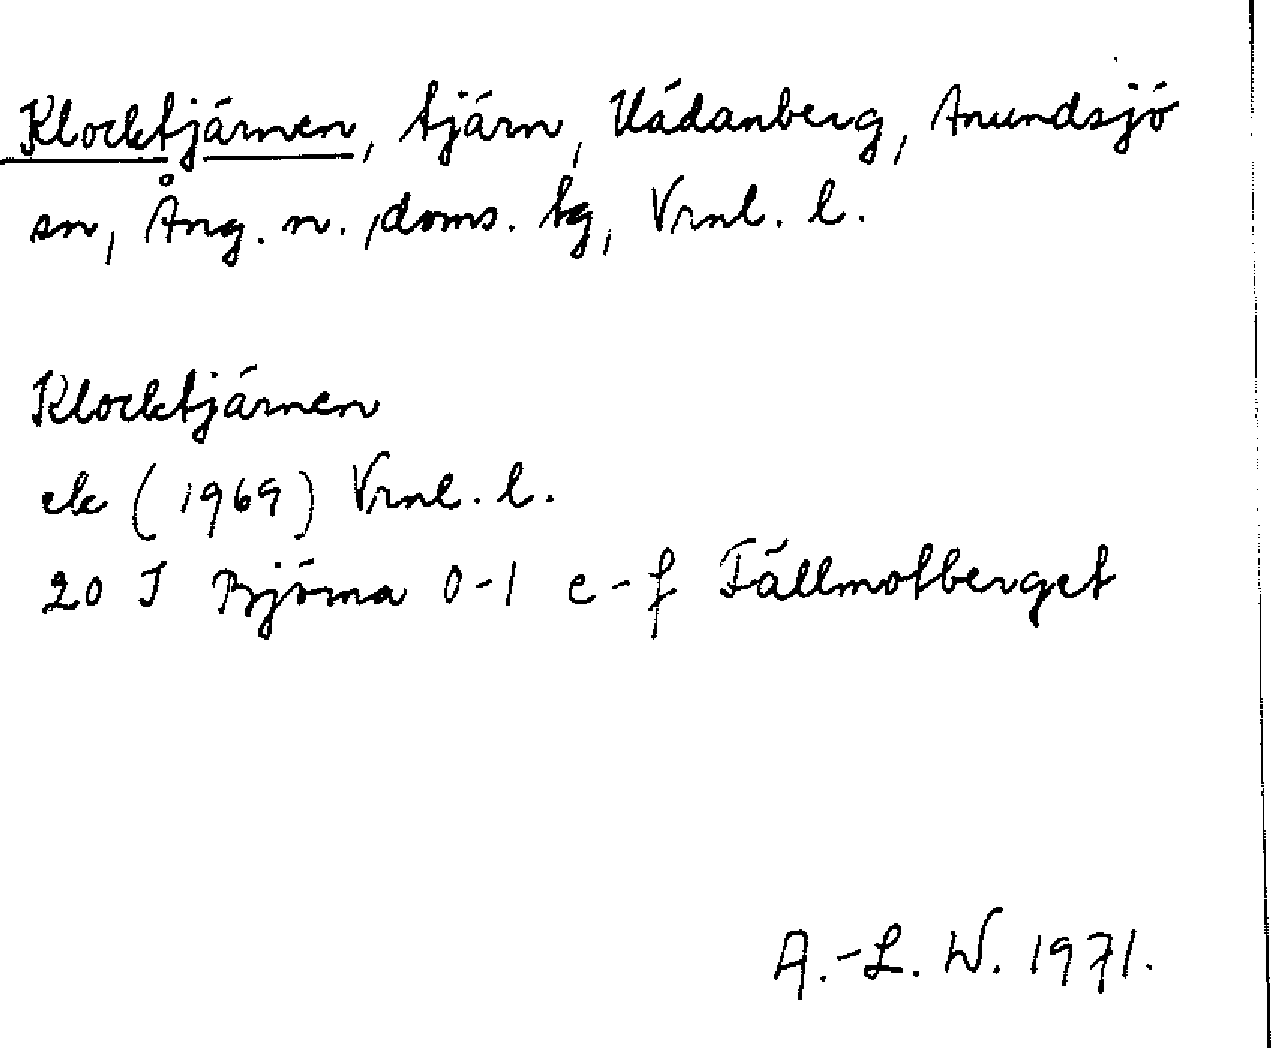 Klocktjärnen, tjärn, Vådanberg, Anundsjö
sn, Ång. n. , doms. tg, Vrnl. l.
Klocktjärnen
ek (1969) Vrnl. l.
20 I Björna 0-1 e-f Fällmotberget
A.-L. W. 1971.